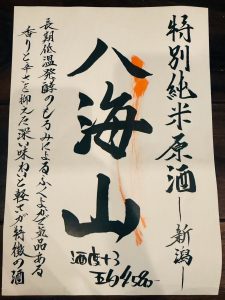 特別純米原酒―新潟―
八海山
酒度+3
五勺 580-
長期低温発酵のもろみによるふくよかで気品ある
香りと辛さを抑えた深い味わいと軽さが特徴の酒